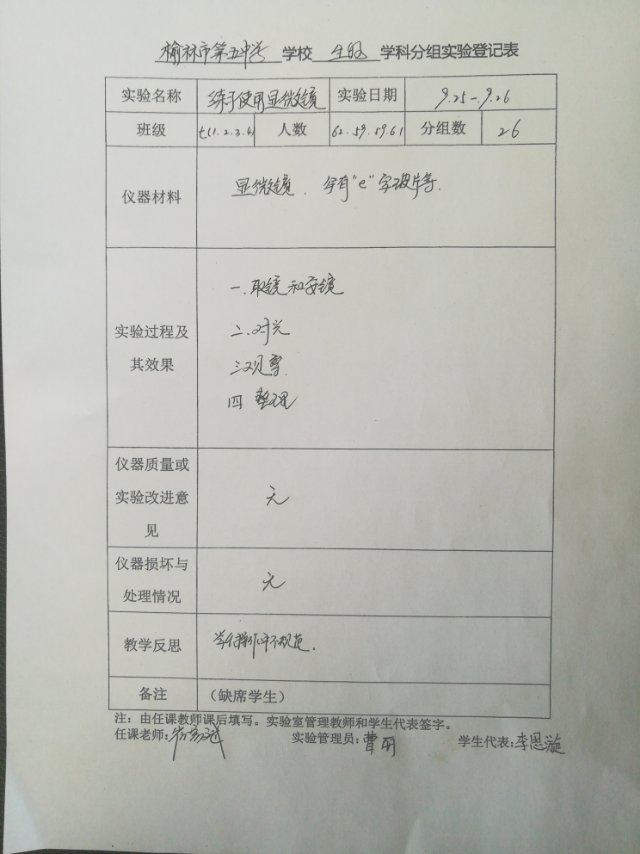 榆林市第五中学 学校 生物 学科分组实验登记表
实验名称 练习使用显微镜 实验日期 9.25-9.26
班级 七(1.2.3.4) 人数 62.59.59.61 分组数 26
仪器材料 显微镜、写有"e"字玻片等.
实验过程及
其效果
一.取镜和安镜
二.对光
三.观察
四 整理
仪器质量或
实验改进意
见
无
仪器损坏与
处理情况
无
教学反思 学生操作不规范.
备注 (缺席学生)
注:由任课教师课后填写。实验室管理教师和学生代表签字。
任课老师: 实验管理员:曹 学生代表:李恩璇